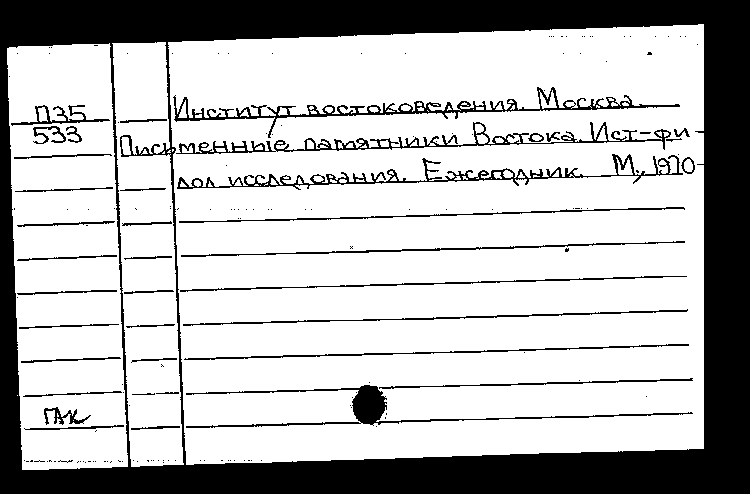 П35 Институт востоковедения. Москва.
533 Письменные памятники Востока. Ист-фи-
лол исследования. Ежегодник. М., 1970-
ГАК